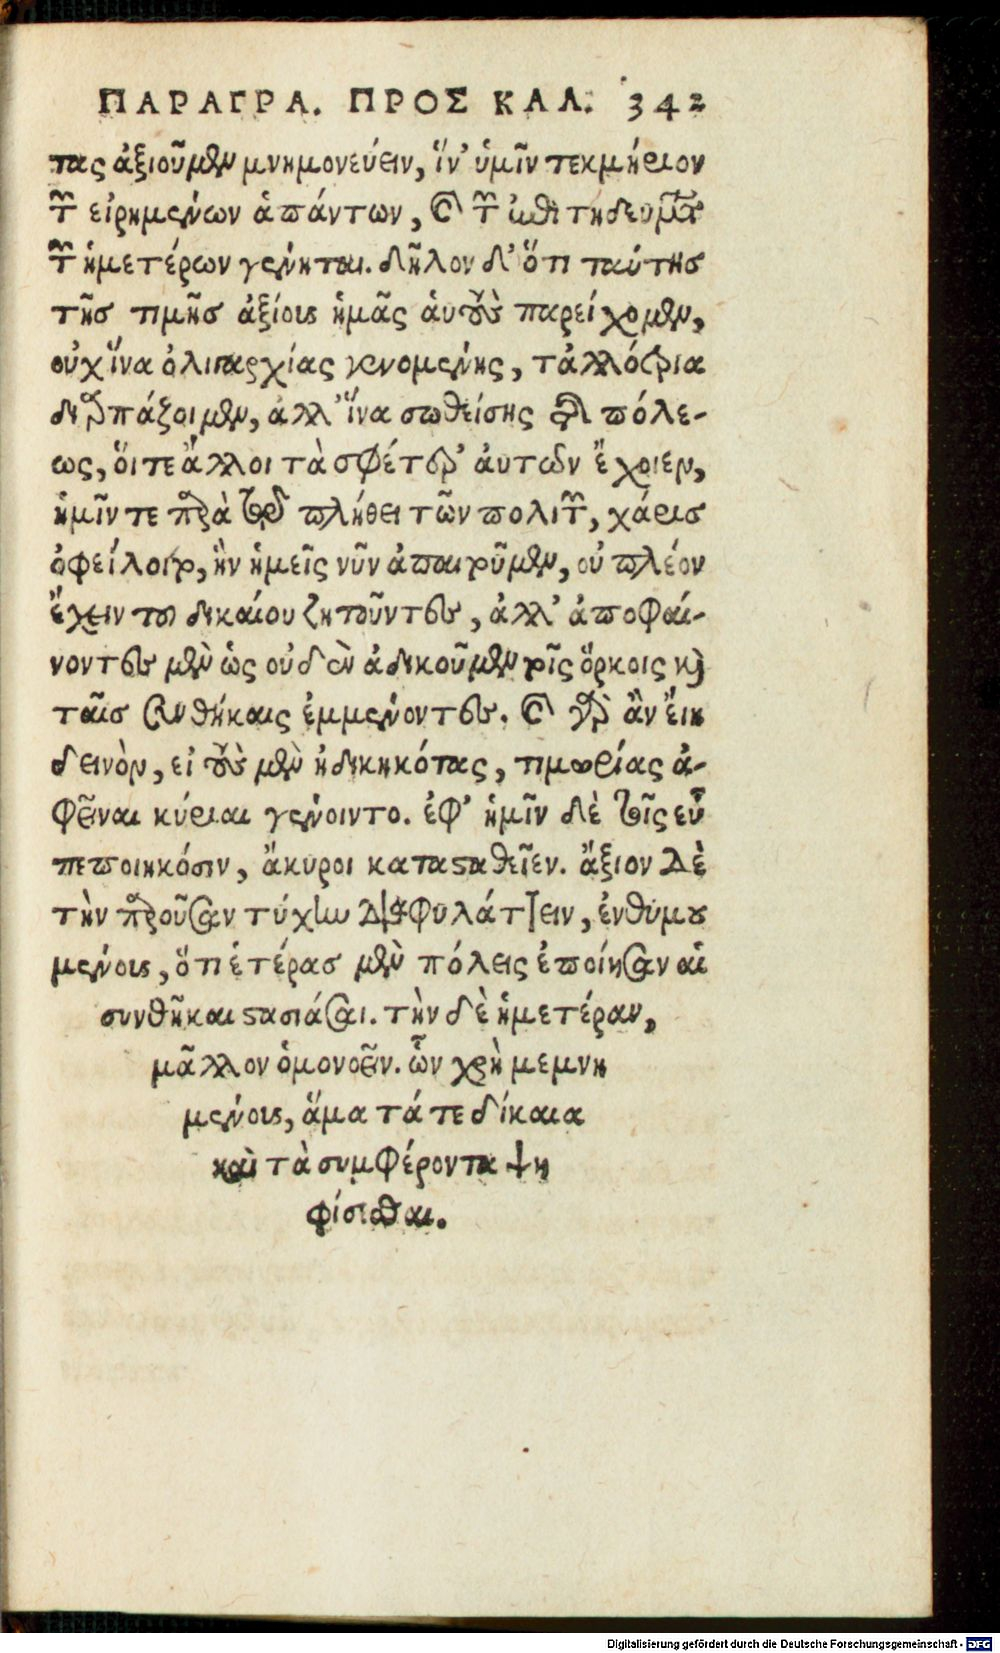 ΠΑΡΑΓΡΑ. ΠΡΟΣ ΚΑΛ. 342
τας ἀξιοῦμεν μνημονεύειν, ἵν' ὑμῖν τεκμήριον
τῶν εἰρημένων ἁπάντων, καὶ τῶν ἐπιτηδευμάτων
τῶν ἡμετέρων γένηται. δῆλον δ' ὅτι ταύτης
τῆς τιμῆς ἀξίους ἡμᾶς αὐτοὺς παρείχομεν,
οὐχ ἵνα ὀλιγαρχίας γενομένης, τἀλλότρια
διαρπάξοιμεν, ἀλλ' ἵνα σωθείσης τῆς πόλε-
ως, οἵ τε ἄλλοι τὰ σφέτερ' αὐτῶν ἔχοιεν,
ἡμῖν τε παρὰ τῷ πλήθει τῶν πολιτῶν, χάρις
ὀφείλοιτο, ἣν ἡμεῖς νῦν ἀπαιτοῦμεν, οὐ πλέον
ἔχειν τοῦ δικαίου ζητοῦντες, ἀλλ' ἀποφαί-
νοντες μὲν ὡς οὐδὲν ἀδικοῦμεν τοῖς ὅρκοις καὶ
ταῖς συνθήκαις ἐμμένοντες. καὶ γὰρ ἂν εἴη
δεινὸν, εἰ τοὺς μὲν ἠδικηκότας, τιμωρίας ἀ-
φεῖναι κύριαι γένοιντο. ἐφ' ἡμῖν δὲ τοῖς εὖ
πεποιηκόσιν, ἄκυροι κατασταθεῖεν. ἄξιον δὲ
τὴν παροῦσαν τύχην διαφυλάττειν, ἐνθυμου
μένους, ὅτι ἑτέρας μὲν πόλεις ἐποίησαν αἱ
συνθῆκαι στασιάσαι. τὴν δὲ ἡμετέραν,
μᾶλλον ὁμονοεῖν. ὧν χρὴ μεμνη
μένους, ἅμα τά τε δίκαια
καὶ τὰ συμφέροντα ψη
φίσασθαι.
Digitalisierung gefördert durch die Deutsche Forschungsgemeinschaft - DFG